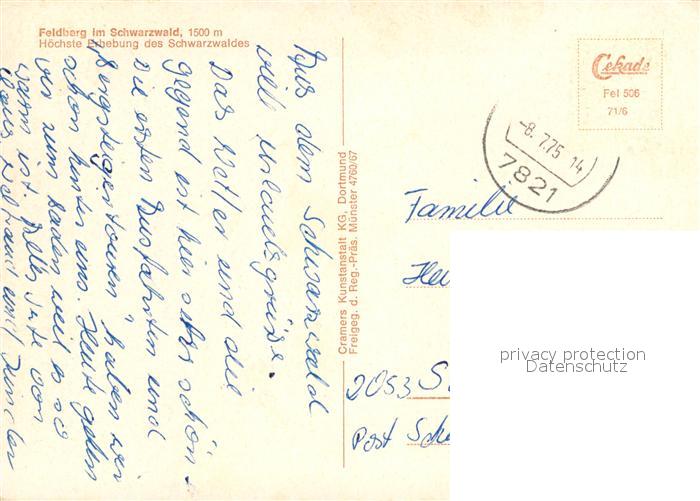 Feldberg im Schwarzwald, 1500 m
Höchste Erhebung des Schwarzwaldes
Aus dem Schwarzwald
viel Urlaubsgrüße.
Das Wetter und die
gegend ist hier sehr schön.
Die ersten Ausfahrten und
"Bergsteigertouren" haben wir
schon hinter uns. Heute gehen
wir zum baden weil es so
warm ist. Alles Gute von
Kinder
Cramers Kunstanstalt KG, Dortmund
Freigeg. d. Reg.-Präs. Münster 4760/67
Cekade
Fel 506
71/6
-8. 7.75 14
7821
Familie
Hei
2053 S
Post Sch
privacy protection
Datenschutz